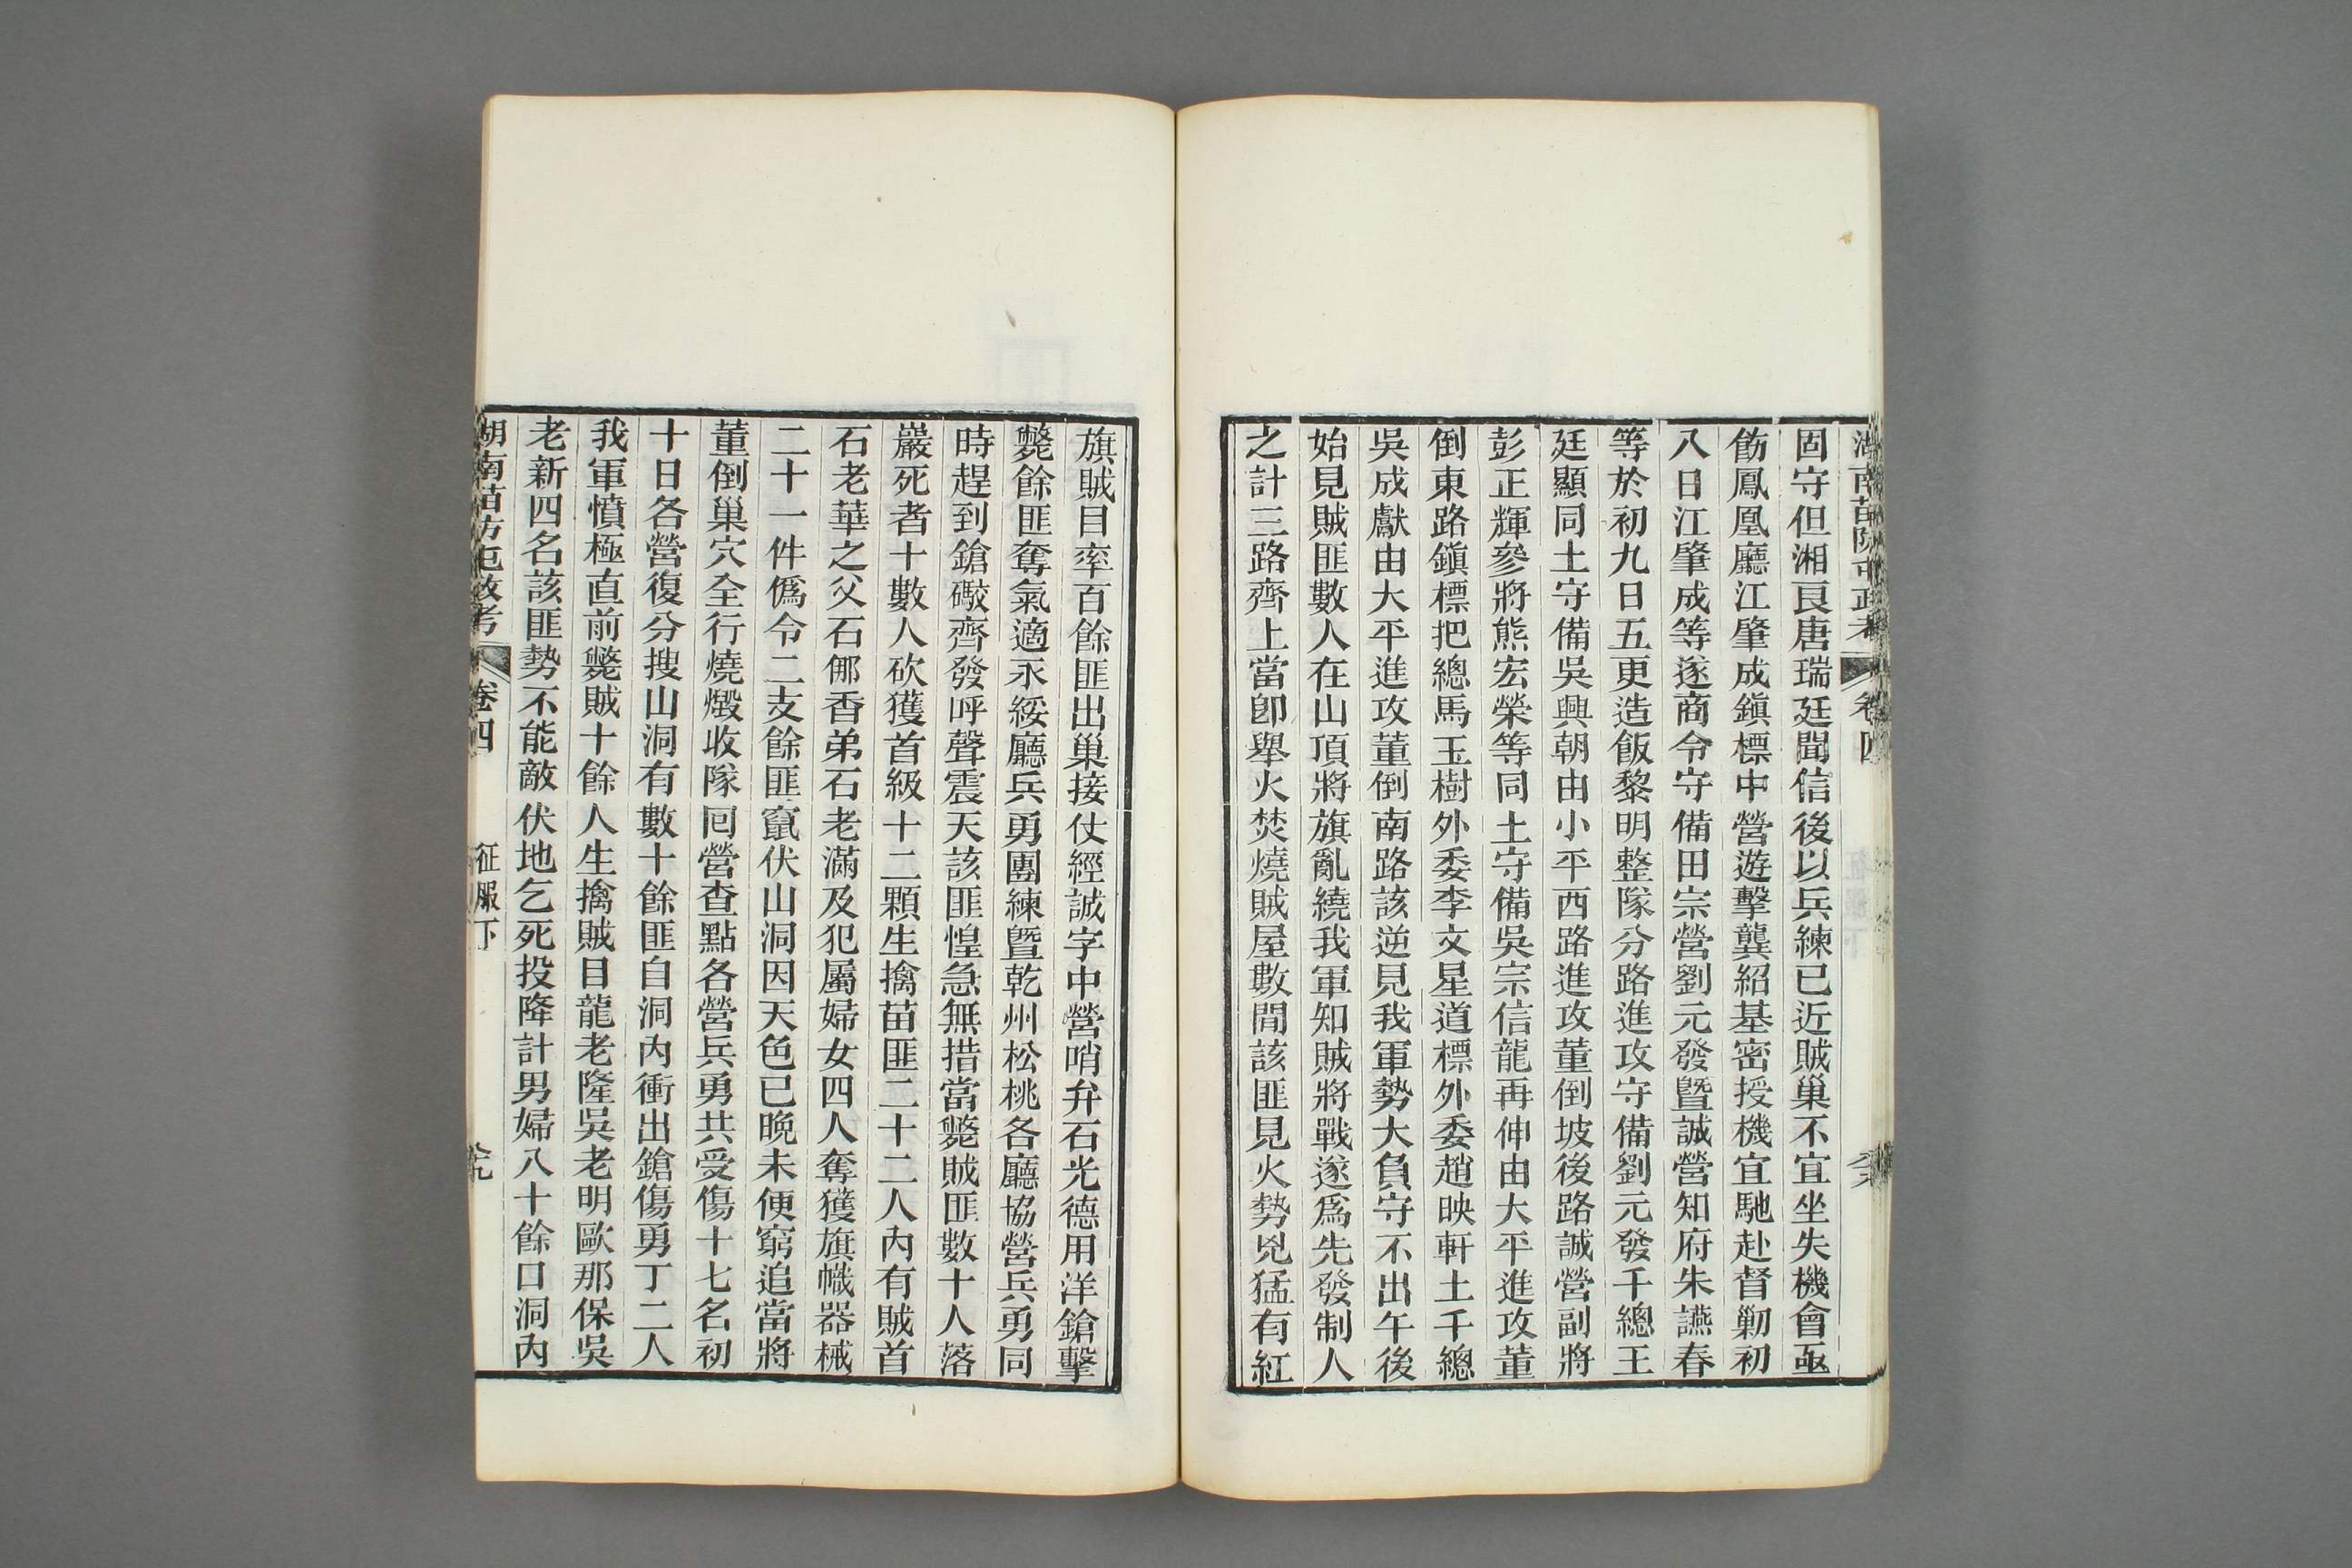 湖南苗防屯政考 卷四
固守但湘艮唐瑞廷聞信後以兵練已近賊巢不宜坐失機會亟
飭鳳凰廳江肇成鎭標中營遊擊龔紹基密授機宜馳赴督勦初
八日江肇成等遂商令守備田宗營劉元發曁誠營知府朱讌春
等於初九日五更造飯黎明整隊分路進攻守備劉元發千總王
廷顯同土守備吳興朝由小平西路進攻董倒坡後路誠營副將
彭正輝參將熊宏榮等同土守備吳宗信龍再伸由大平進攻董
倒東路鎭標把總馬玉樹外委李文星道標外委趙映軒土千總
吳成獻由大平進攻董倒南路該逆見我軍勢大負守不出午後
始見賊匪數人在山頂將旗亂繞我軍知賊將戰遂爲先發制人
之計三路齊上當卽舉火焚燒賊屋數間該匪見火勢兇猛有紅
旗賊目率百餘匪出巢接仗經誠字中營哨弁石光德用洋鎗擊
斃餘匪奪氣適永綏廳兵勇團練曁乾州松桃各廳協營兵勇同
時趕到鎗礮齊發呼聲震天該匪惶急無措當斃賊匪數十人落
巖死者十數人砍獲首級十二顆生擒苗匪二十二人內有賊首
石老華之父石倻香弟石老滿及犯屬婦女四人奪獲旗幟器械
二十一件僞令二支餘匪竄伏山洞因天色已晚未便窮追當將
董倒巢穴全行燒燬收隊囘營查點各營兵勇共受傷十七名初
十日各營復分搜山洞有數十餘匪自洞內衝出鎗傷勇丁二人
我軍憤極直前斃賊十餘人生擒賊目龍老隆吳老明歐那保吳
老新四名該匪勢不能敵伏地乞死投降計男婦八十餘口洞內
湖南苗防屯政考 卷四 征服下